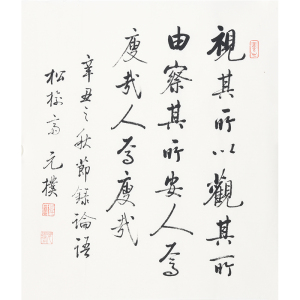 視其所以觀其所
由察其所安人焉
廋哉人焉廋哉
辛丑之秋節錄論語
松 元樸